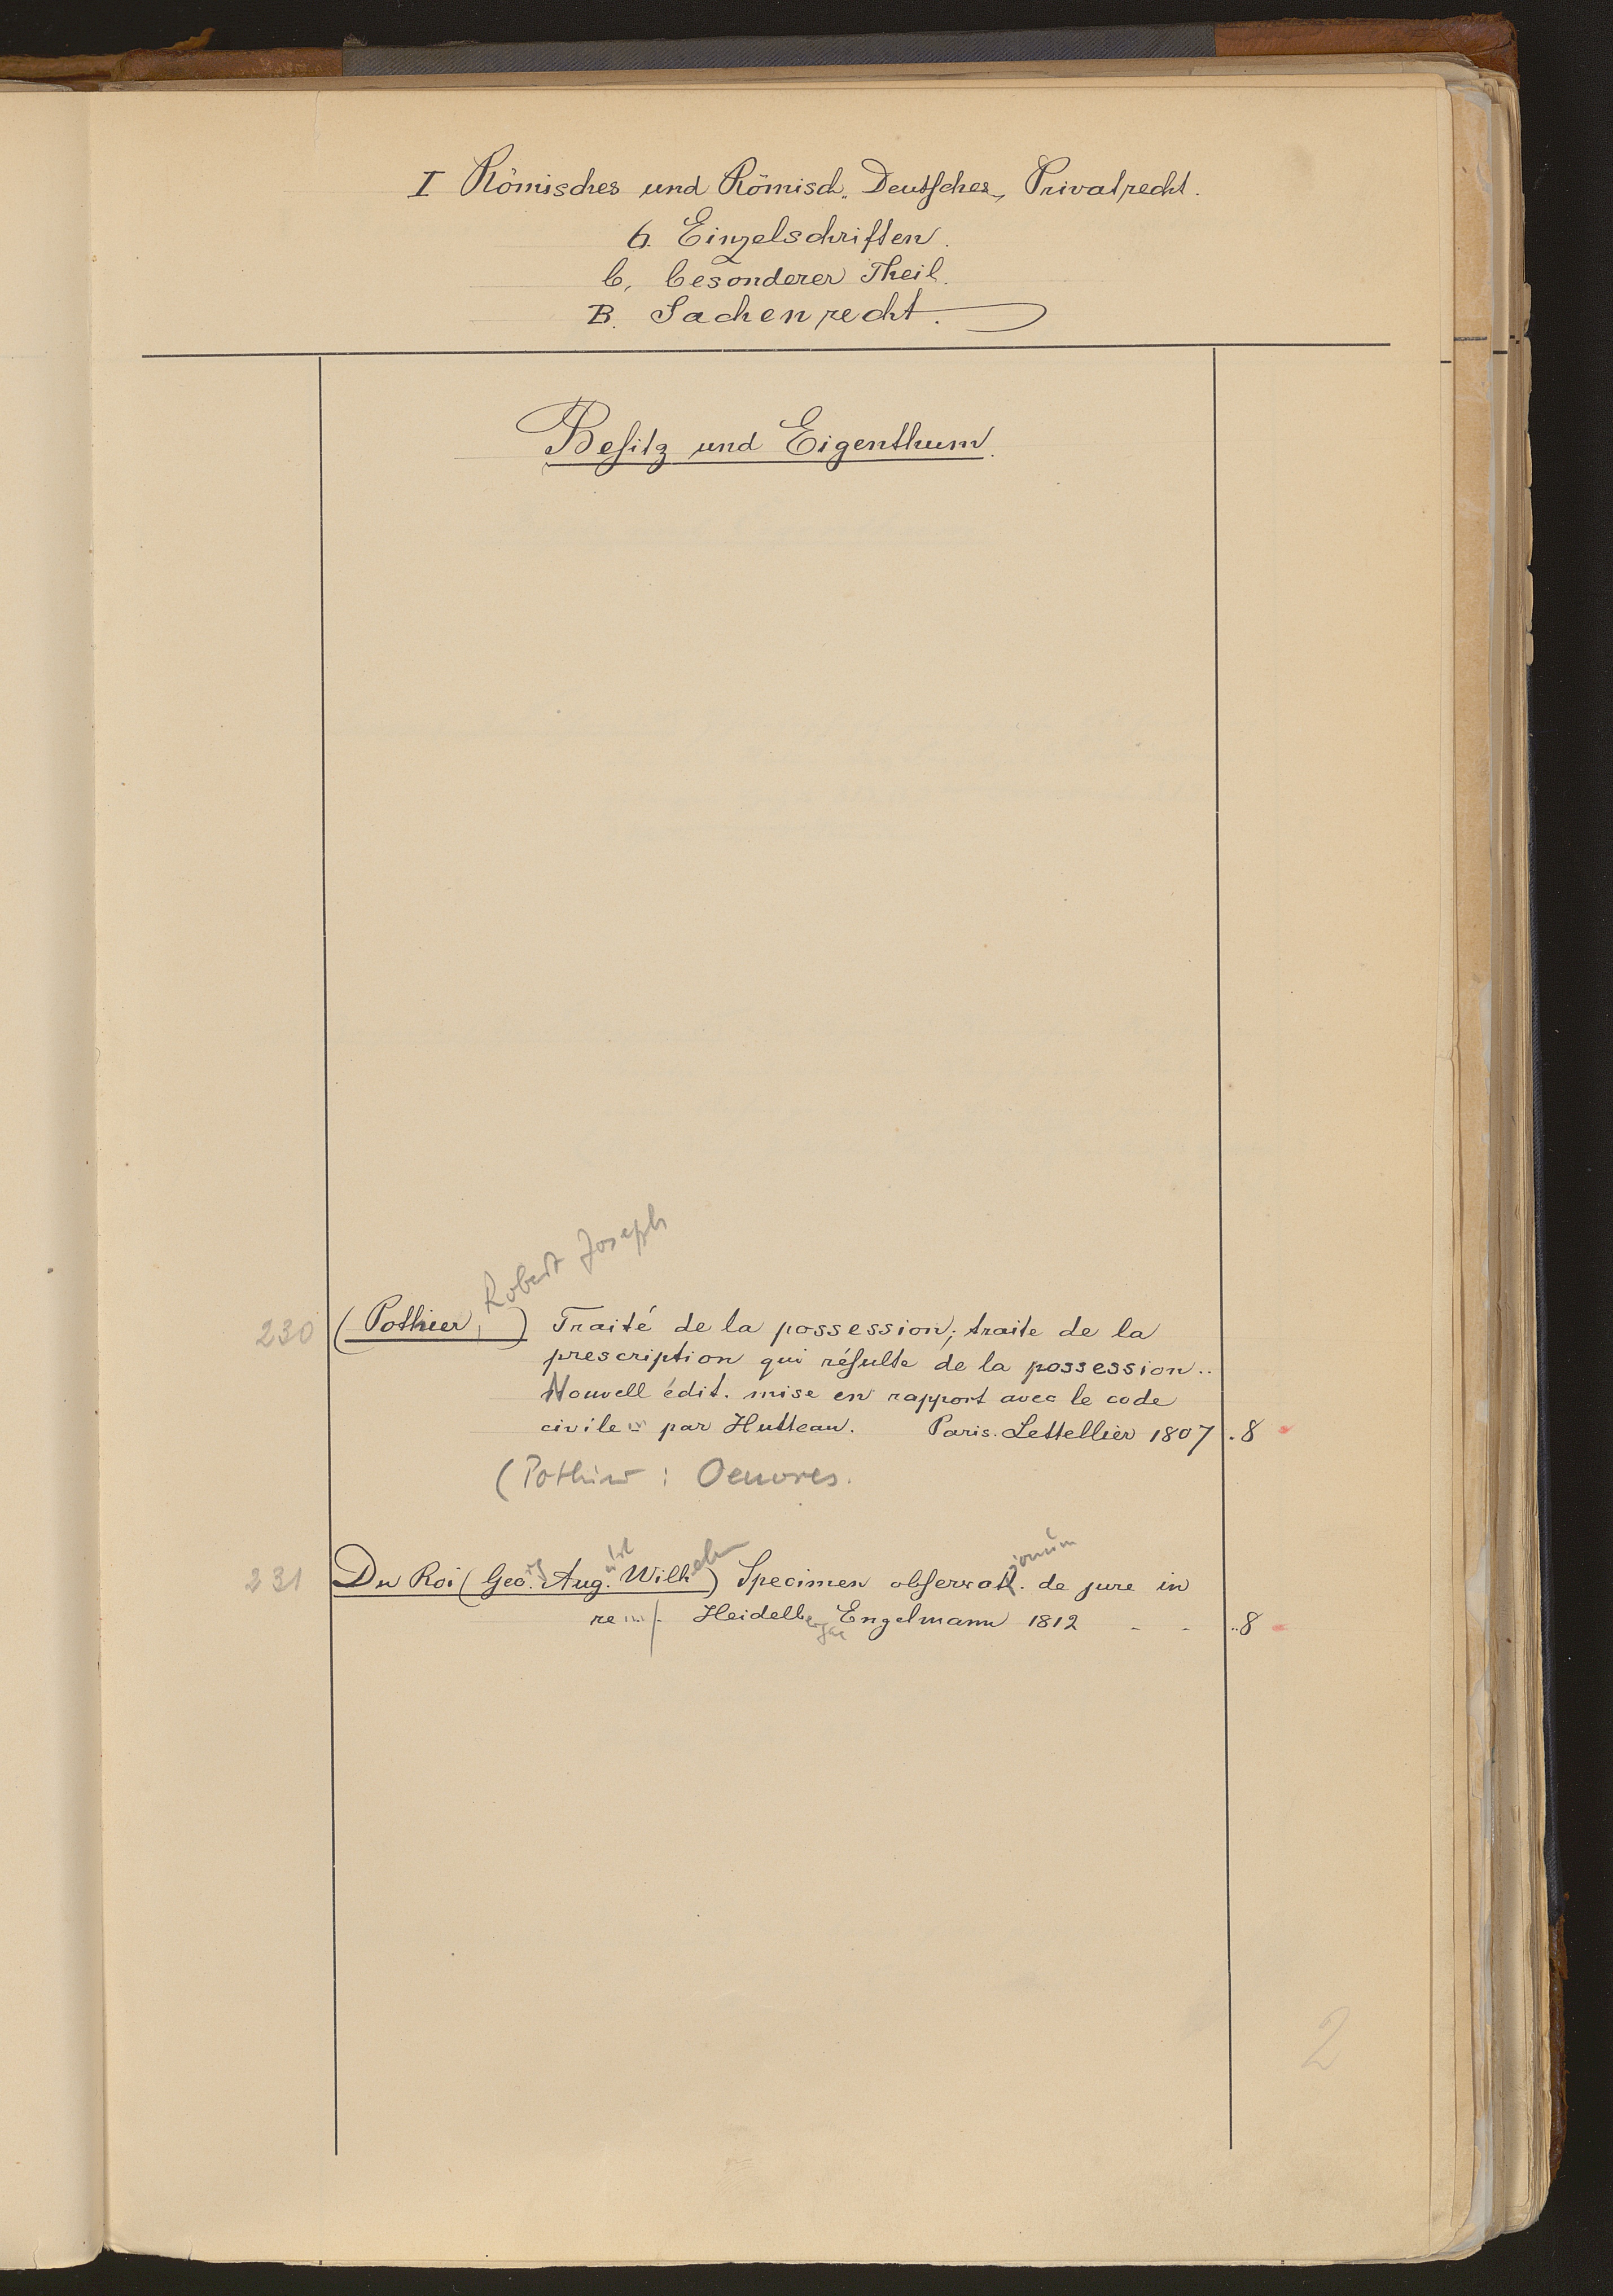 I Römisches und Römisch-Deutsches Privatrecht.
6. Einzelschriften.
b, besonderer Theil.
B. Sachenrecht.
Besitz und Eigenthum.
Robert Joseph
230 (Pothier, ) Traité de la possession; traite de la
prescription qui résulte de la possession..
Nouvell édit. mise en rapport avec le code
civile par Hutteau. Paris. Lettellier 1807 . 8
(Pothier: Oeuvres.
231 Du Roi (Geo. Aug. Wilhelm) Specimen observationum de jure in
re Heidelbergae Engelmann 1812 - - .. 8
2